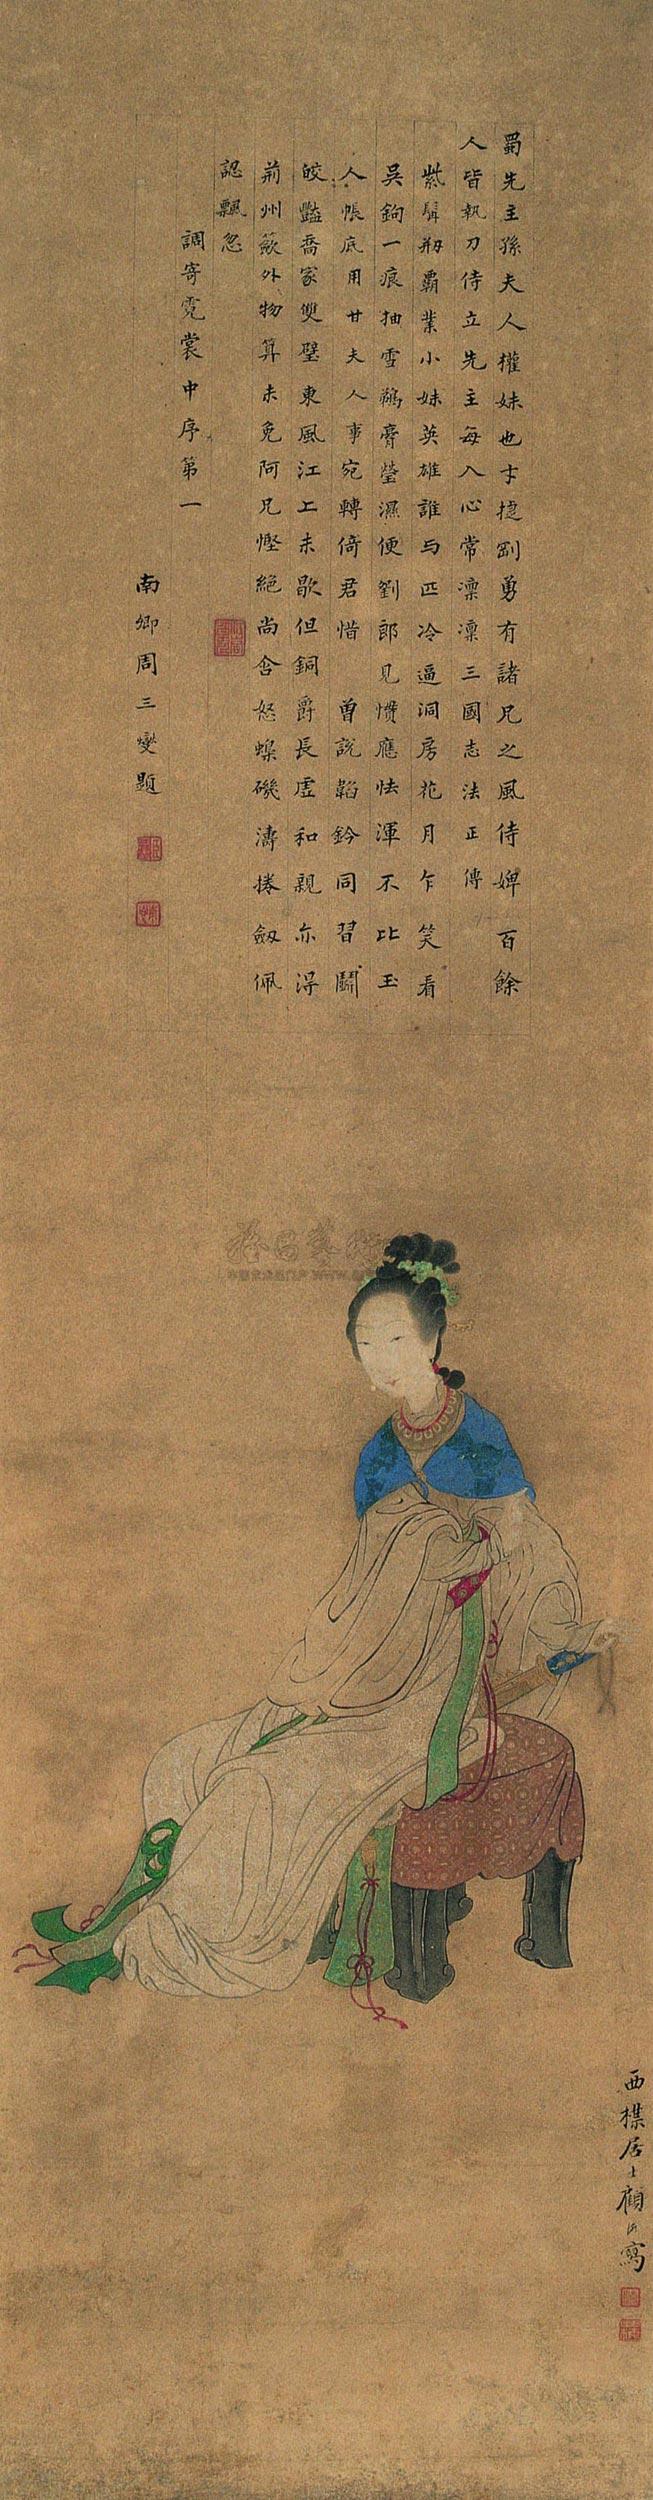 蜀先主孫夫人權妹也才捷剛勇有諸兄之風侍婢百餘
人皆執刀侍立先主每入心常凛凛三國志法正傳
紫髯剏霸業小妹英雄誰与匹冷逼洞房花月乍笑看
吳鉤一痕抽雪鵜膏瑩濕便劉郎見慣應怯渾不比玉
人帳底用甘夫人事宛轉倚君惜 曾說韜鈐同習鬭
皎豔喬家雙璧東風江上未歇但銅爵長虗和親亦得
荊州蔌外物算未免阿兄慳絕尚含怒蟂磯濤捲劔佩
認飄忽
調寄霓裳中序第一
南卿周三燮題
西楳居士顧洛寫